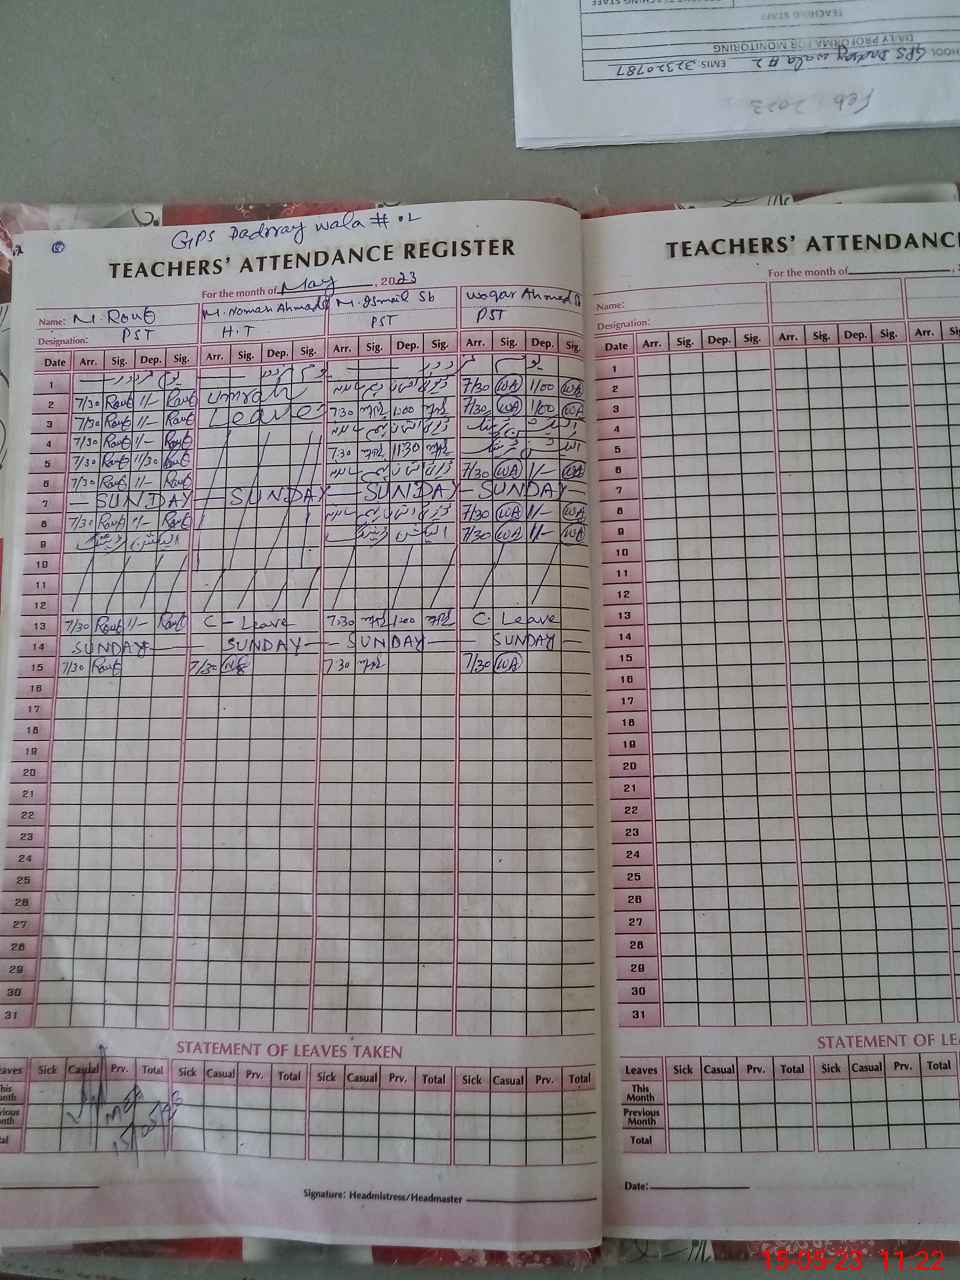 TEACHING STAFF
DAILY PROFORMA FOR MONITORING
GPS Dadray wala # 2 EMIS: 32320787
Feb 2023
GPS Dadray wala # 02
TEACHERS' ATTENDANCE REGISTER
For the month of May, 2023
Name: M. Rouf M. Noman Ahmad M. Ismail Sb Waqar Ahmed
Designation: PST H.T PST PST
Date Arr. Sig. Dep. Sig. Arr. Sig. Dep. Sig. Arr. Sig. Dep. Sig. Arr. Sig. Dep. Sig.
1
2 7/30 Rouf 1/- Rouf Umrah 7/30 WA 1/00 WA
3 7/30 Rouf 1/- Rouf Leave 7:30 1:00 7/30 WA 1/00 WA
4 7/30 Rouf 1/- Rouf
5 7/30 Rouf 11/30 Rouf 7:30 11:30
6 7/30 Rouf 1/- Rouf 7/30 WA 1/- WA
7 — SUNDAY — SUNDAY — SUNDAY — SUNDAY —
8 7/30 Rouf 1/- Rouf 7/30 WA 1/- WA
9 7/30 WA 1/- WA
10
11
12
13 7/30 Rouf 1/- Rouf C - Leave 7:30 1:00 C. Leave
14 SUNDAY — SUNDAY — SUNDAY — SUNDAY —
15 7/30 Rouf 7/30 7:30 7/30 WA
16
17
18
19
20
21
22
23
24
25
26
27
28
29
30
31
STATEMENT OF LEAVES TAKEN
Leaves Sick Casual Prv. Total Sick Casual Prv. Total Sick Casual Prv. Total Sick Casual Prv. Total
This Month
Previous Month
Total
Signature: Headmistress/Headmaster
TEACHERS' ATTENDANC
For the month of
Name:
Designation:
Date Arr. Sig. Dep. Sig. Arr. Sig. Dep. Sig. Arr. Sig.
1
2
3
4
5
6
7
8
9
10
11
12
13
14
15
16
17
18
19
20
21
22
23
24
25
26
27
28
29
30
31
STATEMENT OF LEA
Leaves Sick Casual Prv. Total Sick Casual Prv. Total Sick Casual
This Month
Previous Month
Total
Date:
15-05-23 11:22